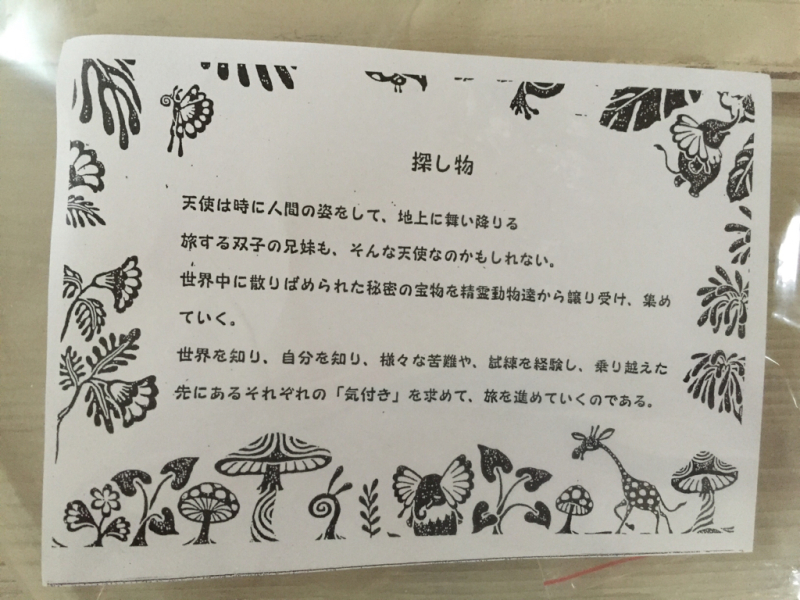 探し物
天使は時に人間の姿をして、地上に舞い降りる
旅する双子の兄妹も、そんな天使なのかもしれない。
世界中に散りばめられた秘密の宝物を精霊動物達から譲り受け、集め
ていく。
世界を知り、自分を知り、様々な苦難や、試練を経験し、乗り越えた
先にあるそれぞれの「気付き」を求めて、旅を進めていくのである。